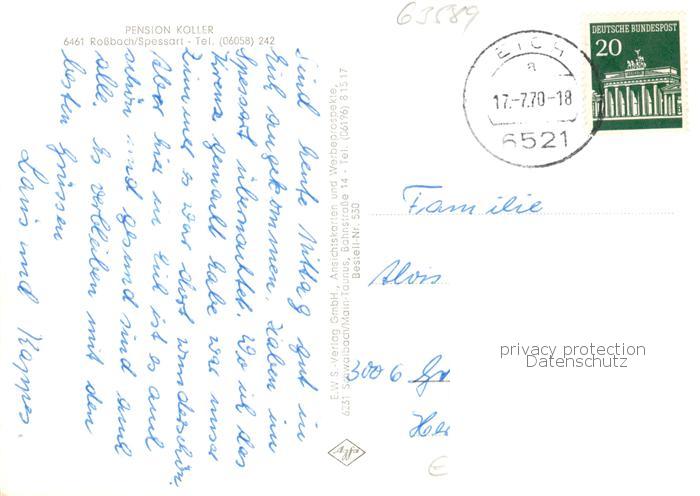 63589
PENSION KOLLER
6461 Roßbach/Spessart - Tel. (06058) 242
Sind heute Mittag gut in
Eich angekommen. Haben im
Spessart übernachtet. Wo ich das
Kreuz gemalt habe war unser
Zimmer es war dort wunderschön.
Aber hier in Eich ist es auch
schön und gesund sind auch
alle. Es verbleiben mit den
besten Grüssen
und
E.W.S.-Verlag GmbH., Ansichtskarten und Werbeprospekte,
6231 Schwalbach/Main-Taunus, Bahnstraße 14 - Tel. (06196) 81517
Bestell-Nr. 530
Agfa
EICH
a
17.-7.70-18
6521
DEUTSCHE BUNDESPOST
20
Familie
Alois
3006
privacy protection
Datenschutz
E